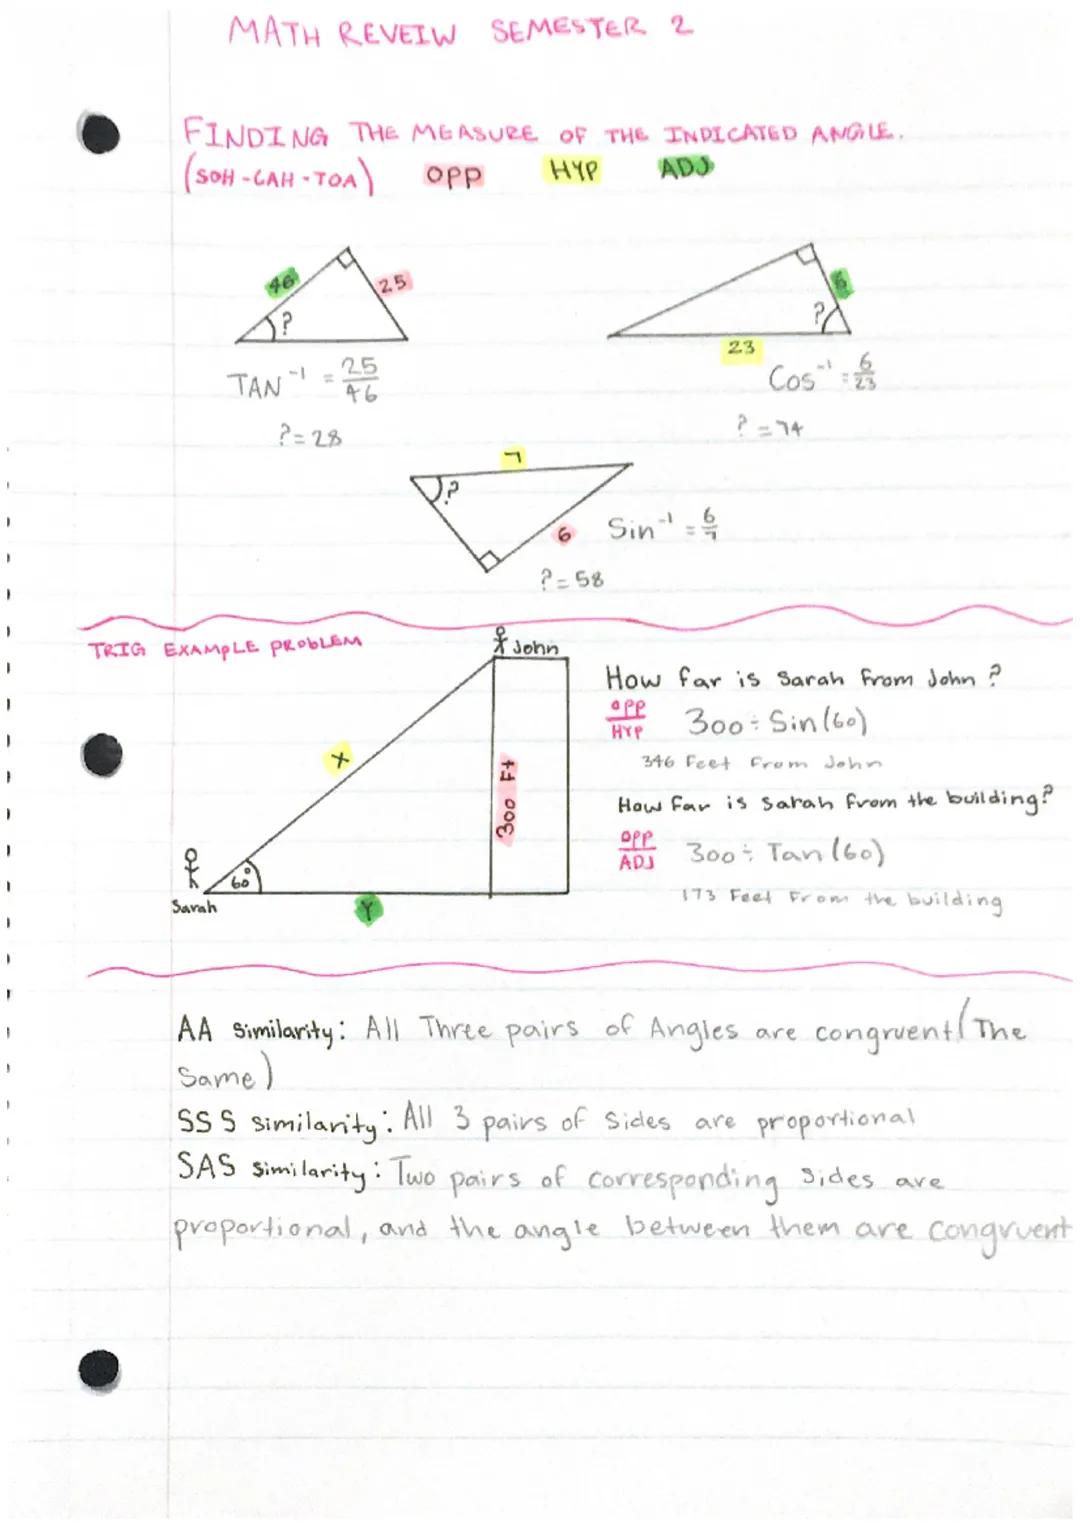 MATH REVEIW SEMESTER 2
FINDING THE MEASURE OF THE INDICATED ANGLE.
(SOH-CAH-TOA) OPP HYP ADJ
46 25
?
TAN⁻¹ = 25/46
?=28
6
?
23
Cos⁻¹ = 6/23
?=74
7
?
6
Sin⁻¹ = 6/7
?=58
TRIG EXAMPLE PROBLEM
John
X
300 Ft
60°
Sarah
Y
How far is Sarah from John?
OPP/HYP 300÷Sin(60)
346 Feet From John
How Far is Sarah from the building?
OPP/ADJ 300÷Tan(60)
173 Feet From the building
AA Similarity: All Three pairs of Angles are congruent (The
Same)
SSS Similarity: All 3 pairs of Sides are proportional
SAS Similarity: Two pairs of corresponding Sides are
proportional, and the angle between them are congruent